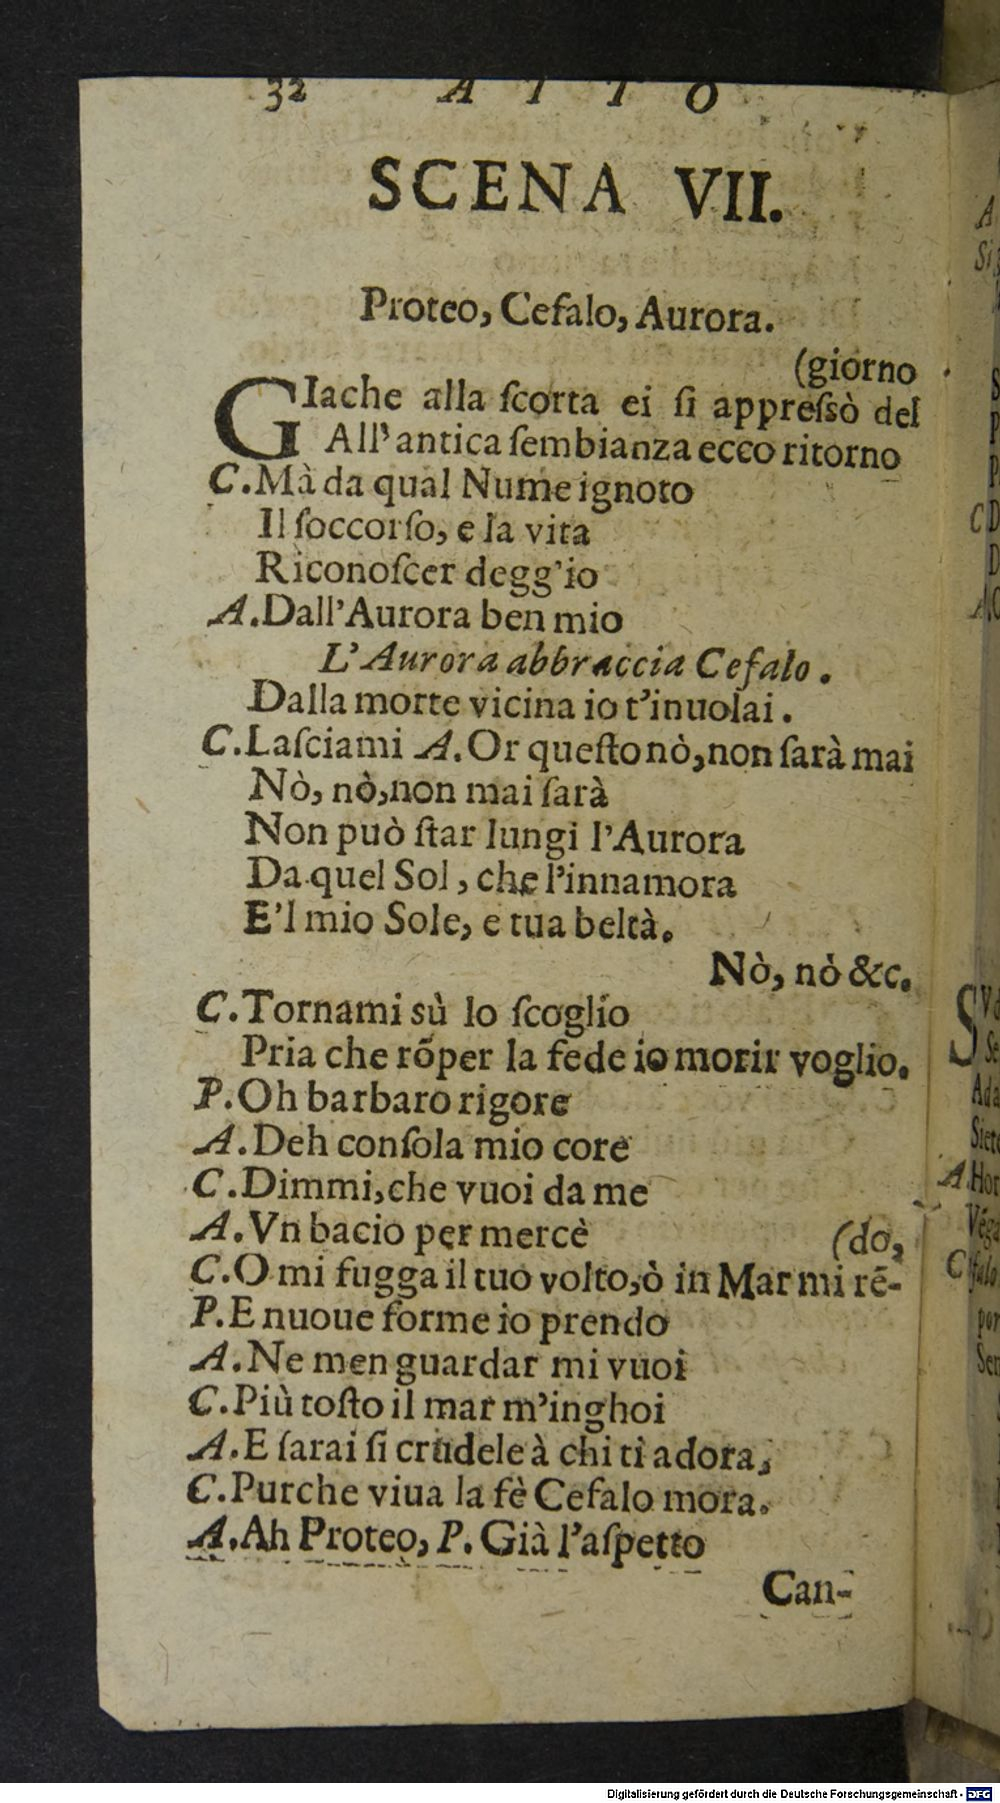 32 ATTO
SCENA VII.
Proteo, Cefalo, Aurora.
(giorno
GIache alla ſcorta ei ſi appreſsò del
All' antica ſembianza ecco ritorno
C. Mà da qual Nume ignoto
Il ſoccorſo, e la vita
Riconoſcer degg'io
A. Dall'Aurora ben mio
L'Aurora abbraccia Cefalo.
Dalla morte vicina io t'inuolai.
C. Laſciami A. Or queſto nò, non ſarà mai
Nò, nò, non mai ſarà
Non può ſtar lungi l'Aurora
Da quel Sol, che l'innamora
E'l mio Sole, e tua beltà.
Nò, nò &c.
C. Tornami sù lo ſcoglio
Pria che rōper la fede io morir voglio.
P. Oh barbaro rigore
A. Deh conſola mio core
C. Dimmi, che vuoi da me
A. Vn bacio per mercè
(do,
C. O mi fugga il tuo volto, ò in Mar mi rē-
P. E nuoue forme io prendo
A. Ne men guardar mi vuoi
C. Più toſto il mar m'inghoi
A. E ſarai ſi crudele à chi ti adora,
C. Purche viua la fè Cefalo mora.
A. Ah Proteo, P. Già l'aſpetto
Can-
Digitalisierung gefördert durch die Deutsche Forschungsgemeinschaft - DFG